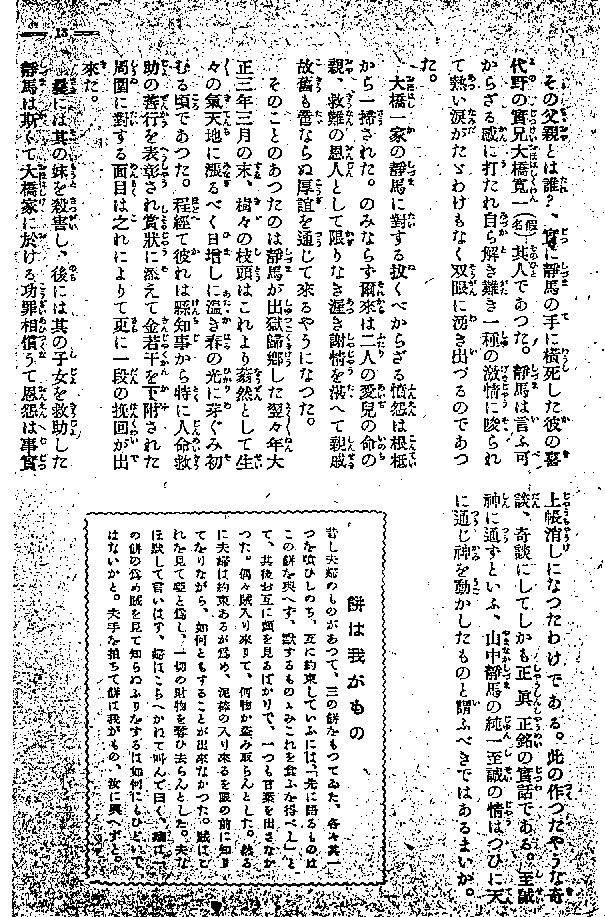 その父親とは誰?、實に靜馬の手に橫死した彼の喜
代野の實兄大橋寬一(假名)其人であつた。靜馬は言ふ可
からざる感に打たれ自ら解き難き一種の激情に唆られ
て熱い淚がたゞわけもなく双眼に湧き出づるのであつ
た。
大橋一家の靜馬に對する拔くべからざる憤怨は根柢
から一掃された。のみならず爾來は二人の愛兒の命の
親、救難の恩人として限りなき渥き謝情を湛へて親戚
故舊も啻ならぬ厚誼を通じて來るやうになつた。
そのことのあつたのは靜馬が出獄歸鄕した翌々年大
正三年三月の末、樹々の枝頭はこれより蓊然として生
々の氣天地に漲るべく日增しに溫き春の光に芽ぐみ初
むる頃であつた。程經て彼れは縣知事から特に人命救
助の善行を表彰され賞狀に添えて金若干を下附された
周圍に對する面目は之れによりて更に一段の挽回が出
來た。
曩には其の妹を殺害し、後には其の子女を救助した
靜馬は斯くて大橋家に於ける功罪相償うて恩怨は事實
上帳消しになつたわけである。此の作つたやうな奇
談、奇談にしてしかも正眞正銘の實話である。至誠
神に通ずといふ、山中靜馬の純一至誠の情はつひに天
に通じ神を動かしたものと謂ふべきではあるまいか。
餅は我がもの
昔し夫婦のものがあつて、三の餅をもつてゐた、各々其一
つを喰ひしのち、互に約束していふには、「先に語るものは
この餅を與へず、默するものゝみこれを食ふを得べし」と
て、其後お互に顏を見るばかりで、一つも言葉を出さなか
つた。偶々賊入り來りて、何物か盜み取らんとした。然る
に夫婦は約束あるが爲め、泥棒の入り來るを眼の前に知り
てをりながら、如何ともすることが出來なかつた。賊はこ
れを見て啞と爲し、一切の財物を奪ひ去らんとした。夫な
ほ默して言いはず、婦はこらへかねて叫んで曰く、
の餅の爲め賊を見て知らぬふりをするは如何にもひどいで
はないかと。夫手を拍ちて餅は我がもの、汝に與へずと。
13